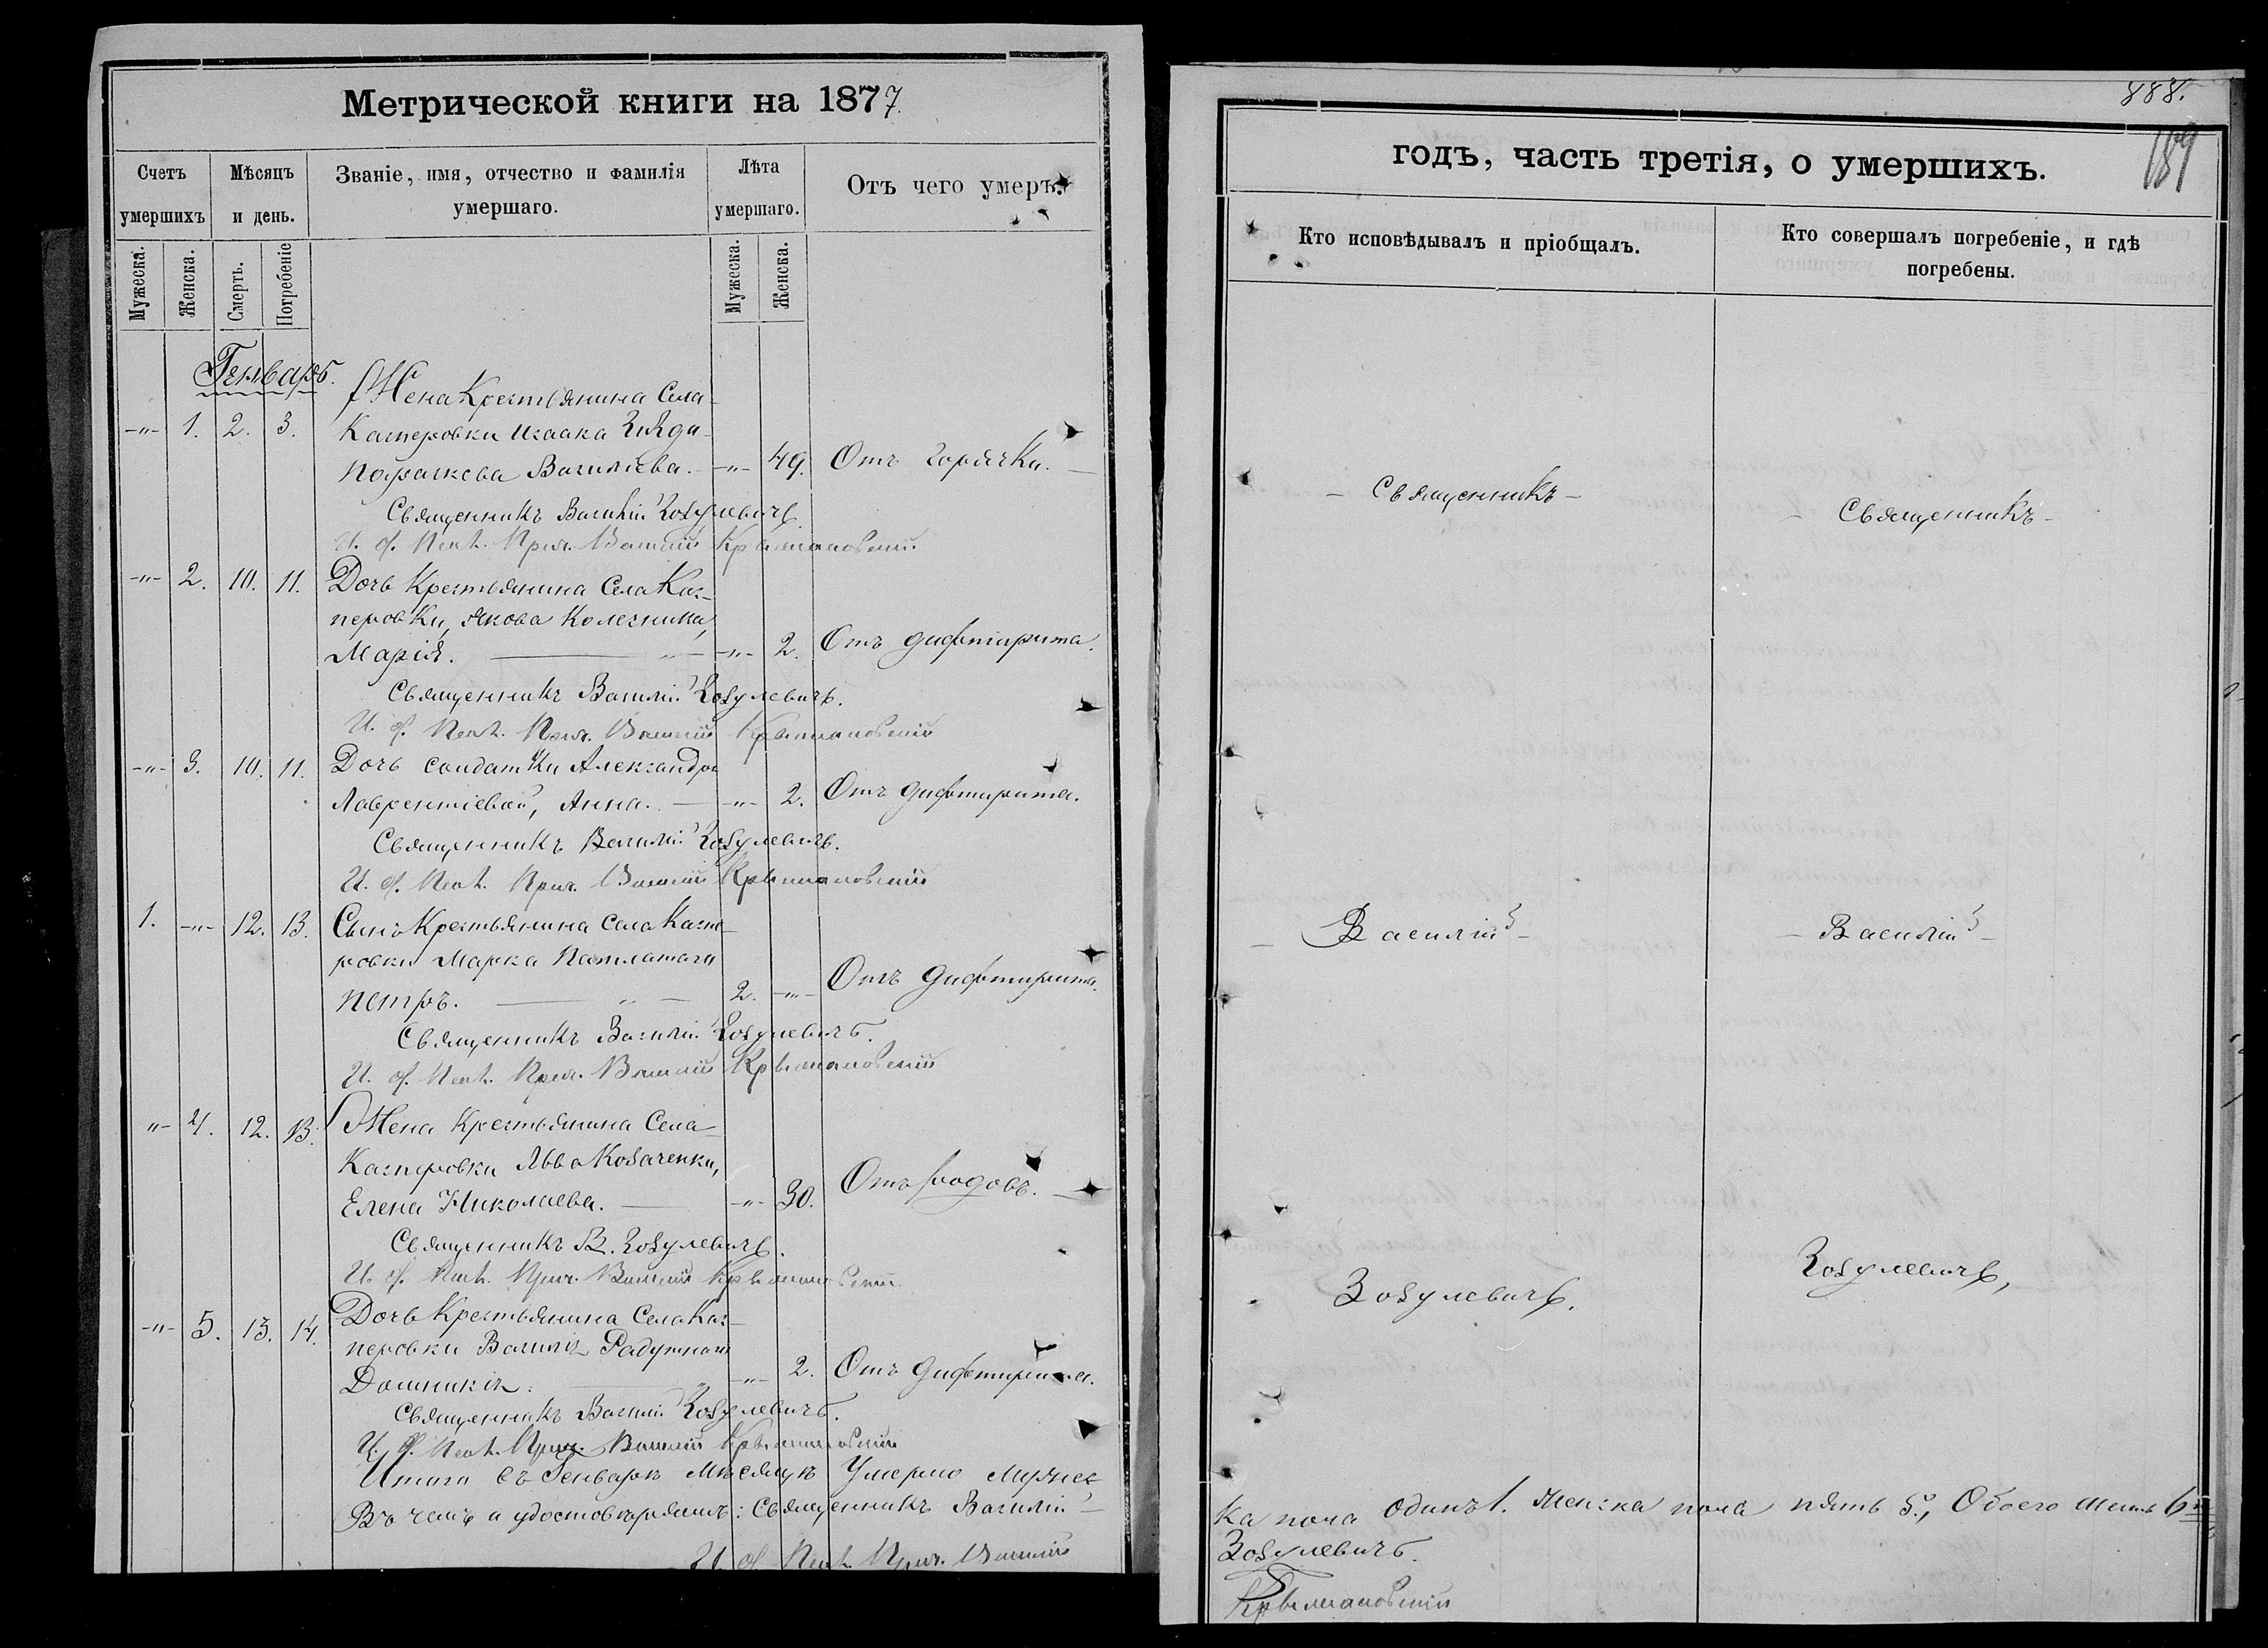 Метрической книги на 1877.
Счетъ умершихъ
Мѣсяцъ и день.
Званіе, имя, отчество и фамилія умершаго.
Лѣта умершаго.
Отъ чего умеръ.
Мужеска.
Женска.
Смерть.
Погребеніе
Мужеска.
Женска.
Генварь.
Жена Крестьянина Села
-"- 1. 2. 3. Касперовки Исаака
Параскева Василіева. -"- 49. Отъ горячки.
Священникъ Василій Зозулевичъ.
И. д. Псал. Прич. Василій Крыжановскій
-"- 2. 10. 11. Дочь Крестьянина Села Кас-
перовки, Якова Колесника,
Марія. -"- 2. Отъ дифтирита.
Священникъ Василій Зозулевичъ.
И. д. Псал. Прич. Василій Крыжановскій
-"- 3. 10. 11. Дочь солдатки Александры
Лаврентіевой, Анна. -"- 2. Отъ дифтирита.
Священникъ Василій Зозулевичъ.
И. д. Псал. Прич. Василій Крыжановскій
1. -"- 12. 13. Сынъ Крестьянина Села Каспе-
ровки Марка
Петръ. 2. -"- Отъ дифтирита.
Священникъ Василій Зозулевичъ.
И. д. Псал. Прич. Василій Крыжановскій
"- 4. 12. 13. Жена Крестьянина Села
Касперовки Льва Козаченки,
Елена Николаева. -"- 30. Отъ родовъ.
Священникъ В. Зозулевичъ.
И. д. Псал. Прич. Василій Крыжановскій
-"- 5. 13. 14. Дочь Крестьянина Села Кас-
перовки Василія
Домникія. -"- 2. Отъ дифтирита.
Священникъ Василій Зозулевичъ.
И. д. Псал. Прич. Василій Крыжановскій
Итого въ Генварѣ Мѣсяцѣ Умерло Мужес-
Въ чемъ и удостовѣряемъ: Священникъ Василій
И. д. Псал. Прич. Василій
888.
189
годъ, часть третія, о умершихъ.
Кто исповѣдывалъ и пріобщалъ.
Кто совершалъ погребеніе, и гдѣ погребены.
- Священникъ -
- Священникъ -
- Василій -
- Василій -
Зозулевичъ.
Зозулевичъ,
ка пола одинъ 1. Женска пола пять 5., Обоего шесть 6
Зозулевичъ.
Крыжановскій